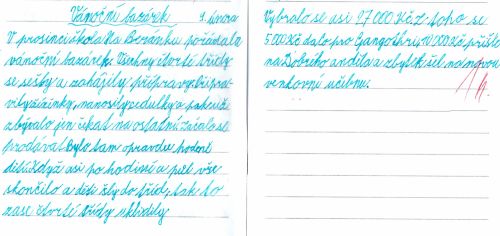 Vánoční bazárek 9. února
V prosinci škola Ka Beránku pořádala
vánoční bazárek. Všechny čtvrté třídy
se sešly a zahájily přípravy. Připra-
vily židinky, nanosily cedulky a pak už
zbývalo jen čekat na ostatní začalo se
prodávat bylo tam opravdu hodně
dětí. Když asi po hodině a půl vše
skončilo a děti šly do tříd, tak to
zase čtvrté třídy uklidily
Vybralo se asi 27 000 Kč z toho se
5 000 Kč dalo pro 000 Kč příště
na Dobrého anděla a zbytek šel na novou
venkovní učebnu.